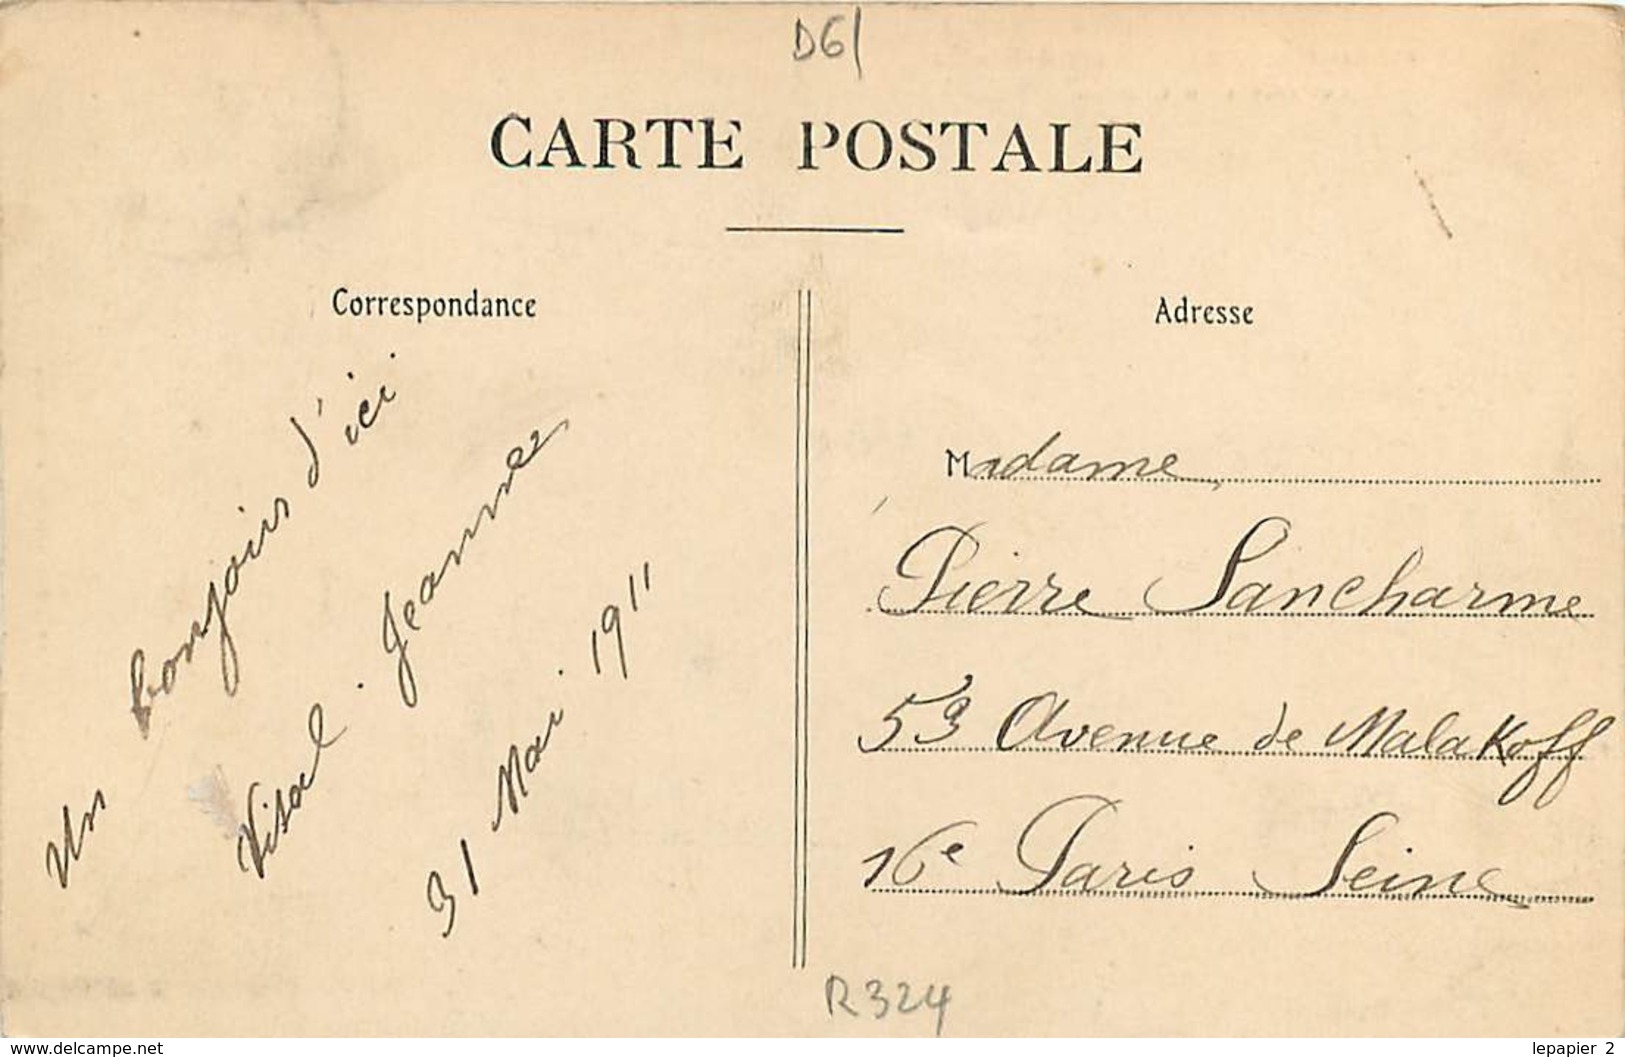 D61
CARTE POSTALE
Correspondance
Un bonjour d'ici
Vital. Jeanne
31 Mai 1911
Adresse
Madame
Pierre Lancharme
53 Avenue de Malakoff
16e Paris Seine
R324
www.delcampe.net
lepapier_2